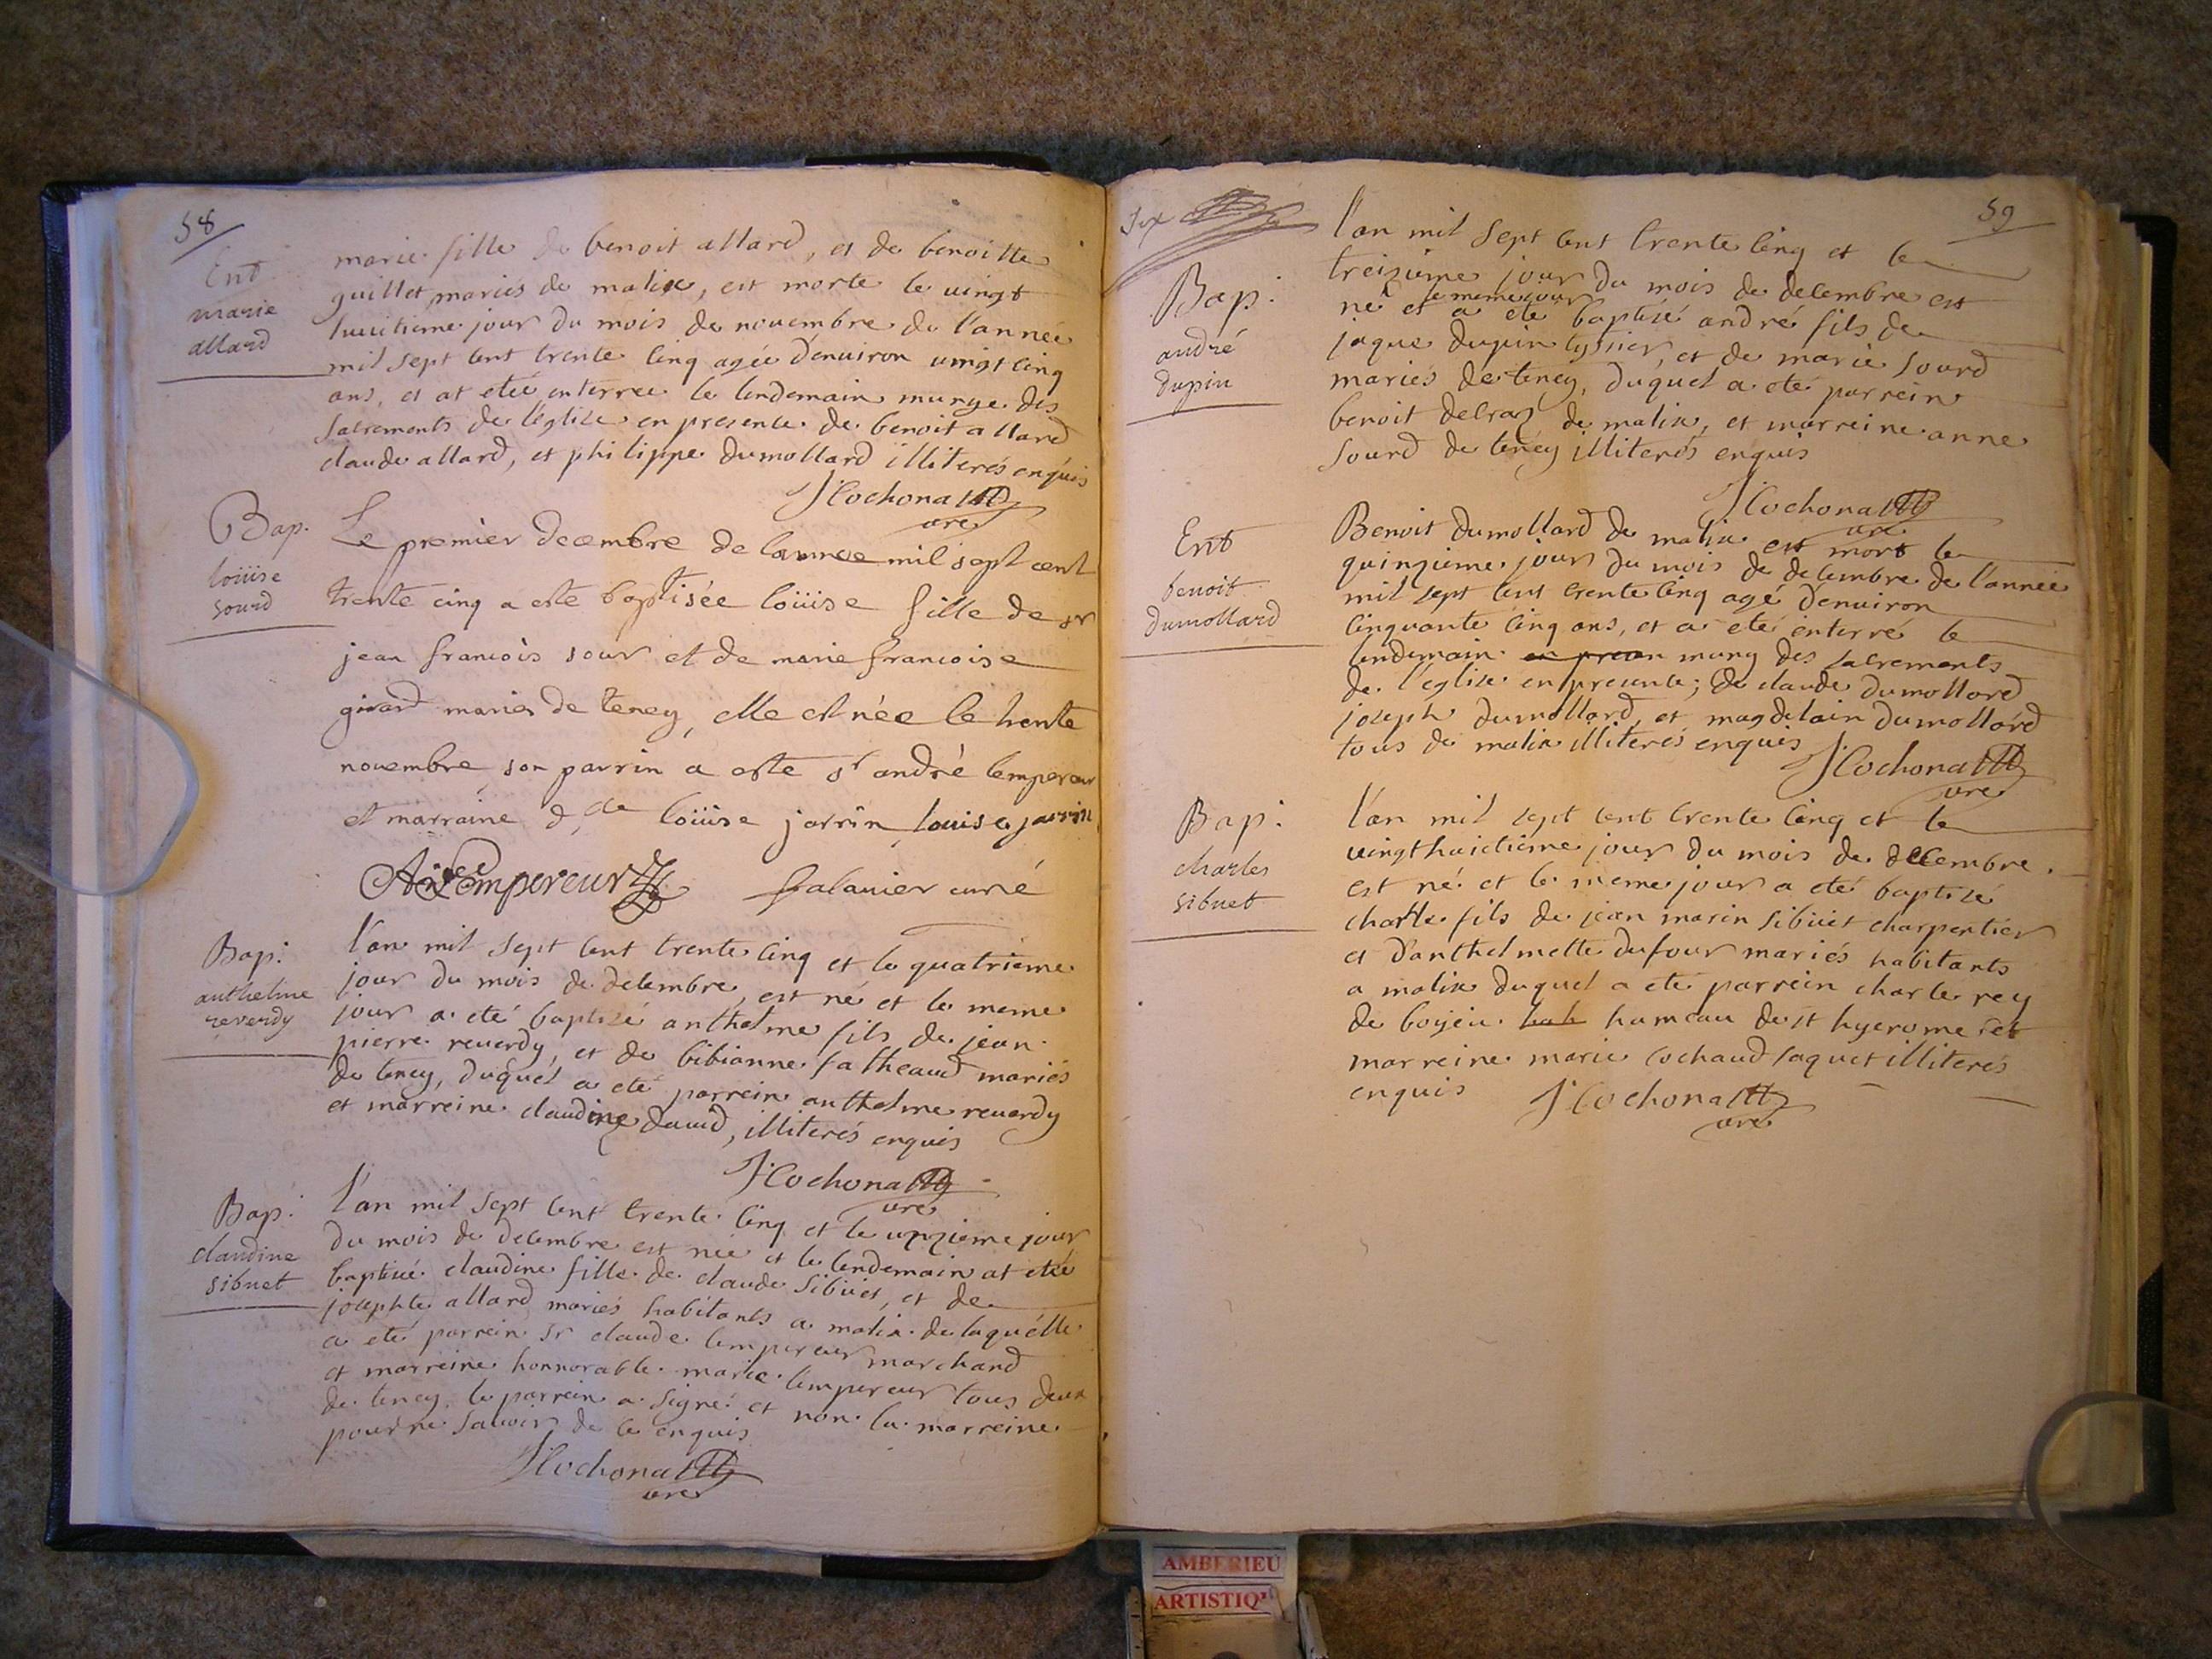 58
Ent
marie
allard
marie fille de benoit allard, et de benoitte
guillet mariés de malix, est morte le uingt
huuitieme jour du mois de nouembre de l'année
mil sept cent trente cinq agée d'enuiron uingt cinq
ans, et at etée enterree le lendemain munye des
sacrements de l'eglise en presence de benoit allard
claude allard, et philippe dumollard illiterés enquis
J Cochonat
cure
Bap.
loüise
sourd
Le premier decembre de lannee mil sept cent
trente cinq a este baptisée loüise fille de sr
jean francois sour et de marie francoise
girard maries de teney, elle est née le trente
nouembre son parrin a este sr andré lempereur
et marraine dde loüise jarrin louise jarrin
A. Lempereur falauier curé
Bap:
anthelme
reverdy
l'an mil sept cent trente cinq et le quatrieme
jour du mois de decembre, est né et le meme
jour a eté baptisé anthelme fils de jean
pierre reuerdy, et de bibianne fatheaud mariés
de teney, duquel a eté parrein anthelme reuerdy
et marreine claudine dauid, illiterés enquis
J Cochonat
cure
Bap:
claudine
sibuet
l'an mil sept cent trente cinq et le unzieme jour
du mois de decembre est née et le lendemain at etée
baptisé claudine fille de claude sibüet, et de
josephte allard mariés habitants a malix de laquelle
a eté parrein sr claude lempereur marchand
et marreine honnorable marie lempereur tous deux
de teney, le parrein a signé et non la marreine
pour ne sauoir de ce enquis
J Cochonat
cure
59
Bap:
andré
dupin
l'an mil sept cent trente cinq et le
treizieme jour du mois de decembre est
né et le meme jour a eté baptisé andré fils de
jaque dupin tyssier, et de marie sourd
mariés de teney, duquel a eté parrein
benoit delraz de malix, et marreine anne
sourd de teney illiterés enquis
J Cochonat
cure
Ent
benoit
dumollard
Benoit dumollard de malix est mort le
quinzieme jour du mois de decembre de l'année
mil sept cent trente cinq agé d'enuiron
cinquante cinq ans, et a eté enterré le
lendemain en presen muny des sacrements
de l'eglise en presence; de claude dumollard
joseph dumollard, et magdelain dumollard
tous de malix illiterés enquis
J Cochonat
cure
Bap:
charles
sibuet
l'an mil sept cent trente cinq et le
uingthuictieme jour du mois de decembre
est né et le meme jour a eté baptisé
charle fils de jean marin sibüet charpentier
et d'anthelmette dufour mariés habitants
a malix duquel a eté parrein charle rey
de boyeu hameau de st hyerome et
marreine marie cochaud saquet illiterés
enquis
J Cochonat
cure
AMBERIEU
ARTISTIQ'